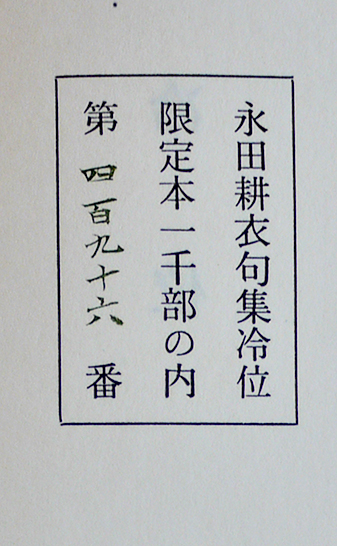 永田耕衣句集冷位
限定本一千部の内
第四百九十六番